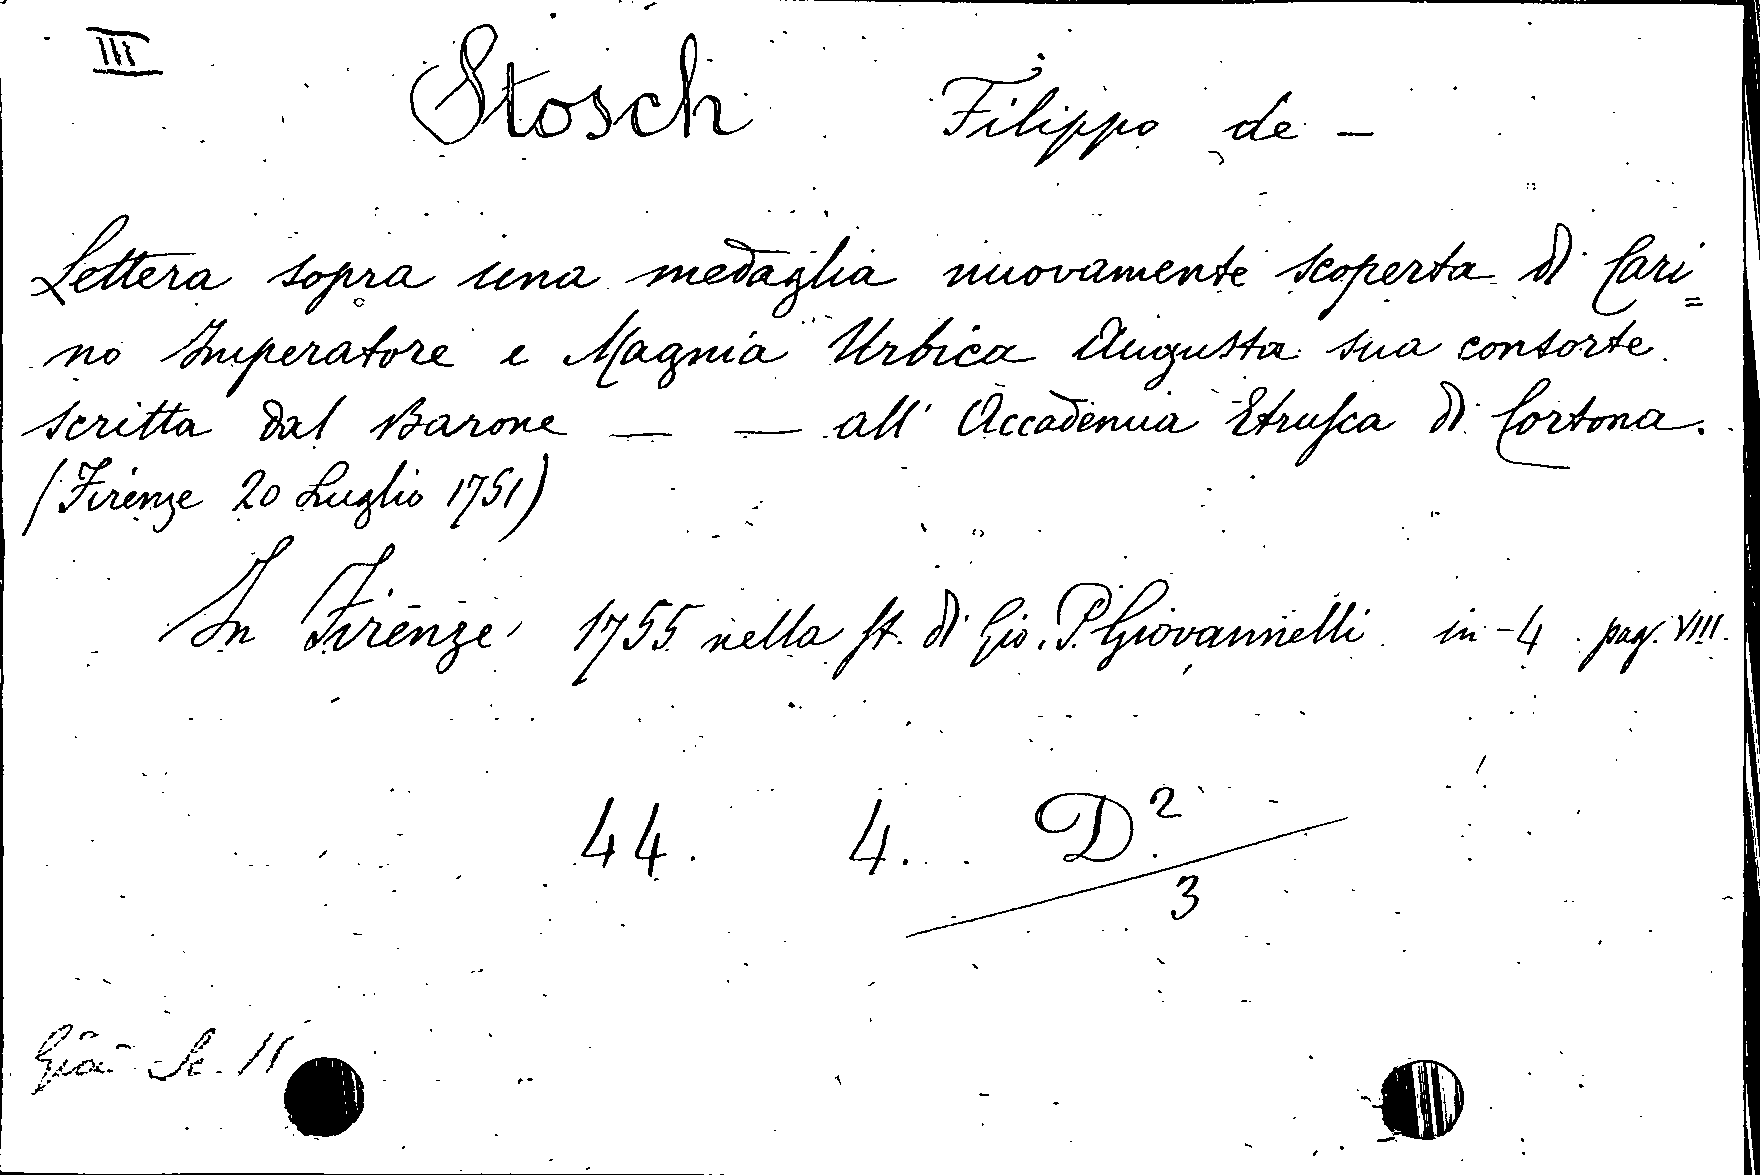 III
Stosch Filippo de –
Lettera sopra una medaglia nuovamente scoperta di Cari=
no Imperatore e Magnia Urbica Augusta sua consorte
scritta dal Barone — — all' Accademia Etrusca di Cortona.
(Firenze 20 Luglio 1751)
In Firenze 1755 nella St. di Gio. P. Giovannelli in-4 pag. VIII.
44. 4. D.2
3
Già Sc. 11